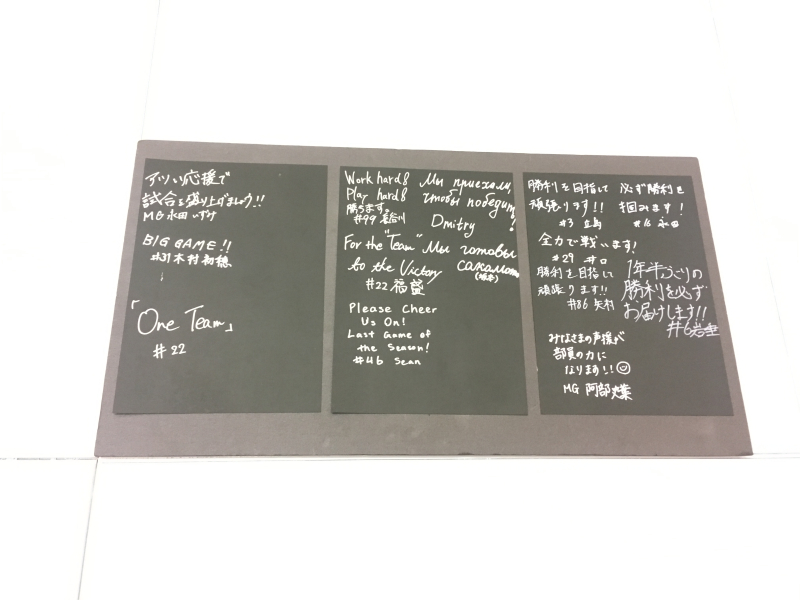 アツい応援で
試合を盛り上げましょう!!
MG 永田いずみ
BIG GAME!!
#31 木村 初穂
「One Team」
#22
Work hard&
Play hard&
勝ちます。
#99 長谷川
Мы приехали,
чтобы победить!
Dmitry
For the "Team"
to the Victory
#22 福盛
Мы готовы
сакамото
(坂本)
Please Cheer
Us On!
Last Game of
the Season!
#46 Sean
勝利を目指して
頑張ります!!
#3 立島
必ず勝利を
掴みます!
#16 永田
全力で戦います!
#29 井口
勝利を目指して
頑張ります!!
#86 矢村
1年半ぶりの
勝利を必ず
お届けします!!
#6 岩重
みなさまの声援が
部員の力に
なります!!
MG 阿部